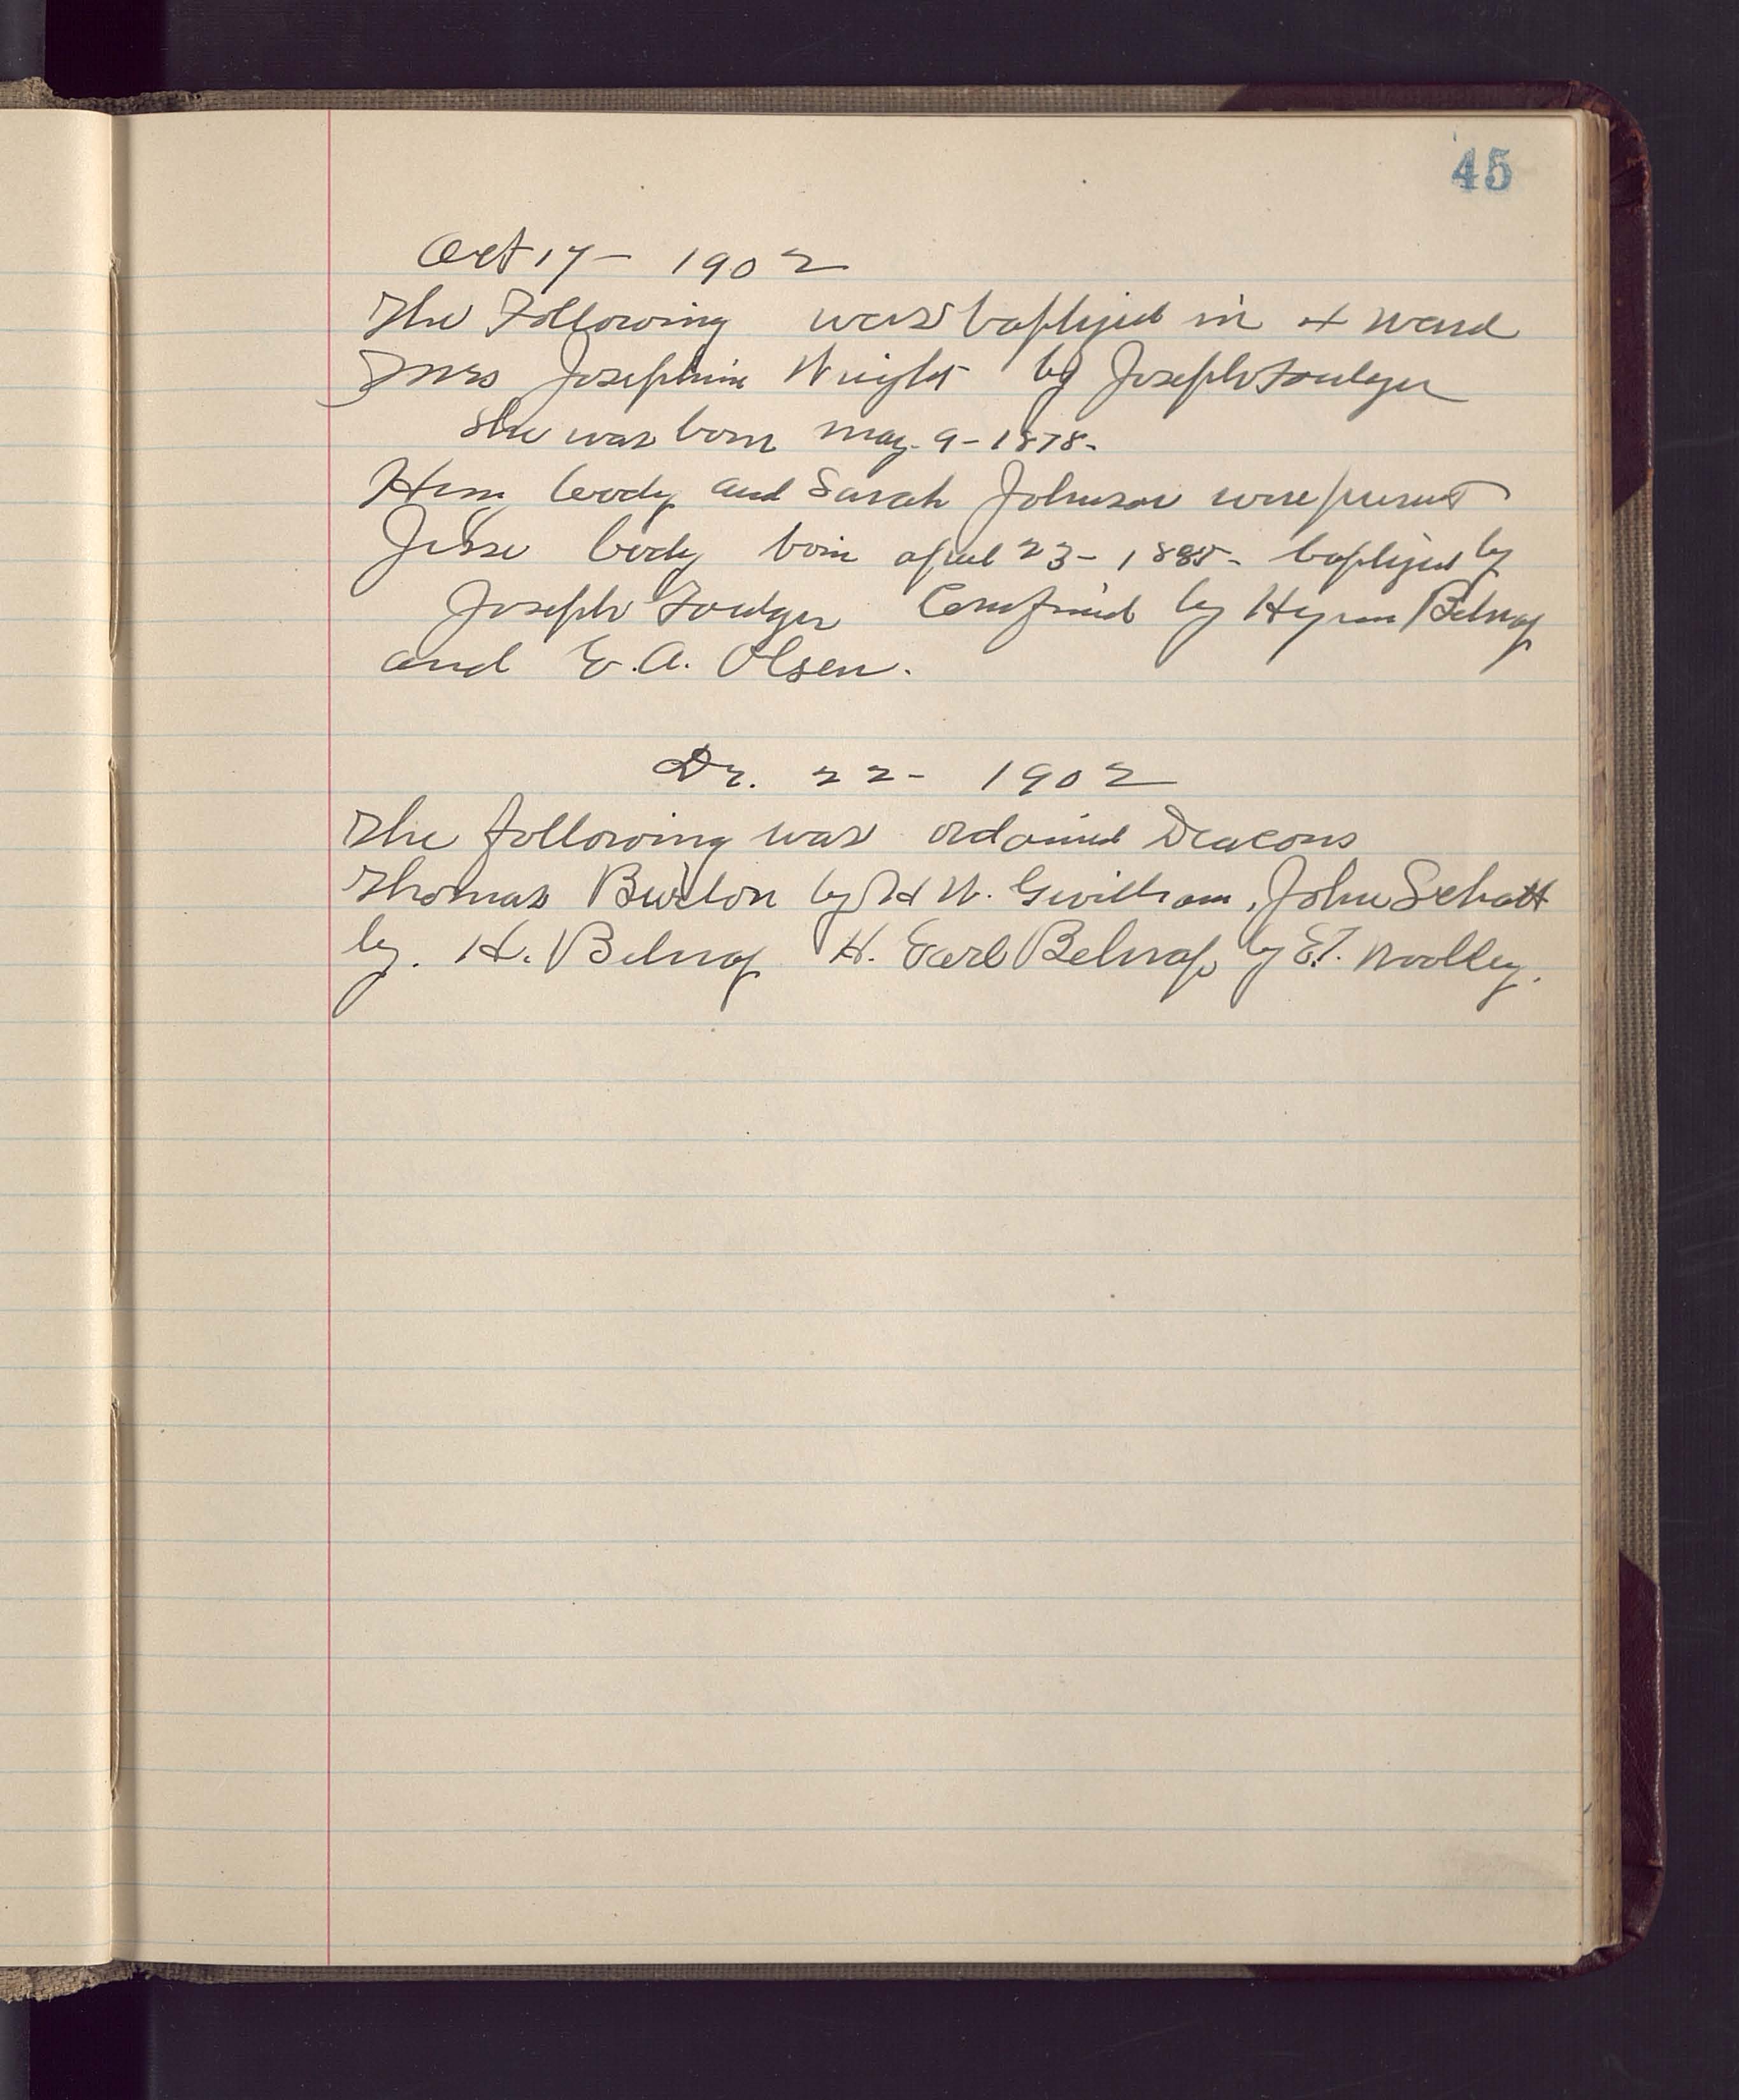 45
Oct 17 - 1902
The Following was baptized in 4 ward
Mrs Josephine Wright by Joseph Foulger
She was born may. 9 - 1878 -
Heny Cody and Sarah Johnson were present
Jesse Cody born april 23 - 188 - baptized by
Joseph Foulger Confrimed by Hyrum Belnap
and E. A. Olsen.
De. 22 - 1902
The following was ordained Deacons
Thomas Burton by H W. Gwilliam, John Schott
by. H. Belnap H. Earl Belnap by E.T. Woolley.